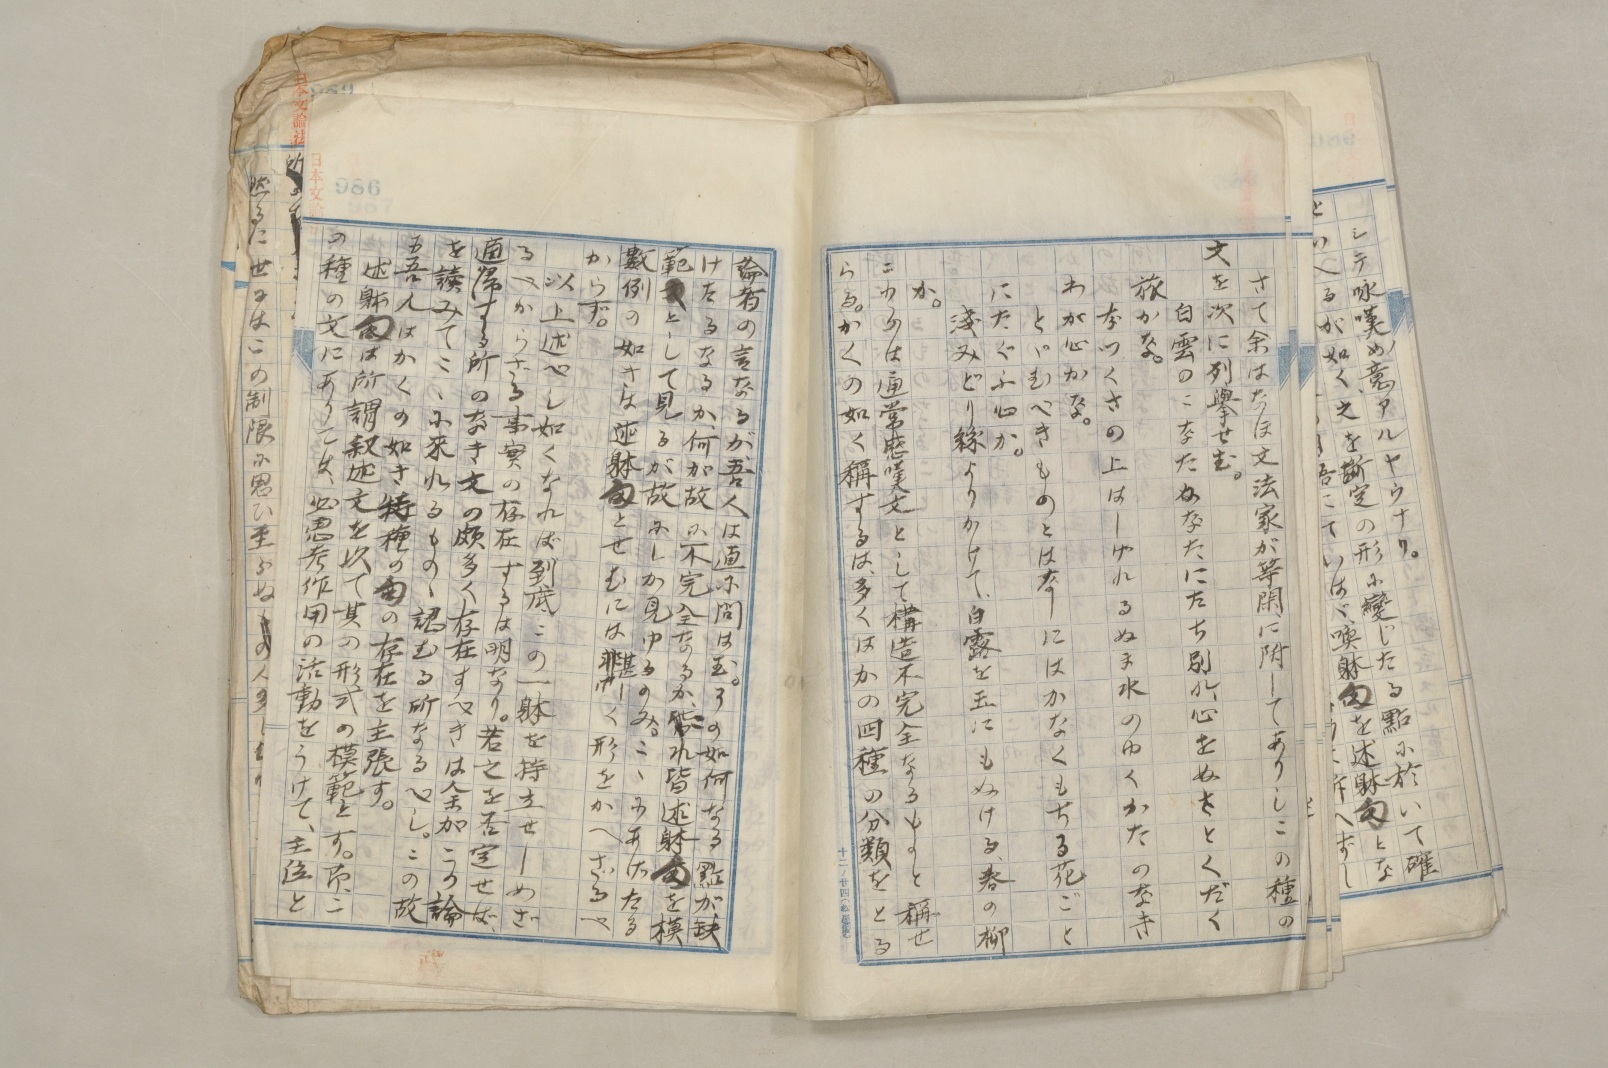 シテ咏嘆ノ意アルヤウナリ。
といへるが如く、之を斷定の形に變じたる點に於いて確
いはゞ、喚躰句を述躰句とな
に訴へずし
さて余はなほ文法家が等閑に附してありしこの種の
文を次に列擧せむ。
白雲のこなたかなたにたち別れ心をぬさとくだく
旅かな。
なつくさの上はしげれるぬま水のゆくかたのなき
わが心かな。
とゞむべきものとはなしにはかなくもちる花ごと
にたぐふ心か。
淺みどり絲よりかけて、白露を玉にもぬける、春の柳
か。
これらは通常感嘆文として構造不完全なるものと稱せ
らる。かくの如く稱するは、多くはかの四種の分類をとる
論者の言なるが吾人は直に問はむ。その如何なる點が缺
けたるなるか、何が故に不完全なるか、これ皆述躰句を模
範として見るが故にしか見ゆるのみ。こゝにあげたる
數例の如きは述躰句とせむには甚しく形をかへざるべ
からず。
以上述べし如くなれば到底この一躰を持立せしめざ
るべからざる事實の存在するは明なり。若之を否定せば、
適歸する所のなき文の頗多く存在すべきは余がこの論
を讀みてこゝに來れるものゝ認むる所なるべし。この故
に吾人はかくの如き特種の句の存在を主張す。
述躰句は所謂叙述文を以て其の形式の模範とす。而こ
の種の文にありては、必思考作用の活動をうけて、主位と
然るに世にはこの制限に思ひ至らぬ
986
日本文論社